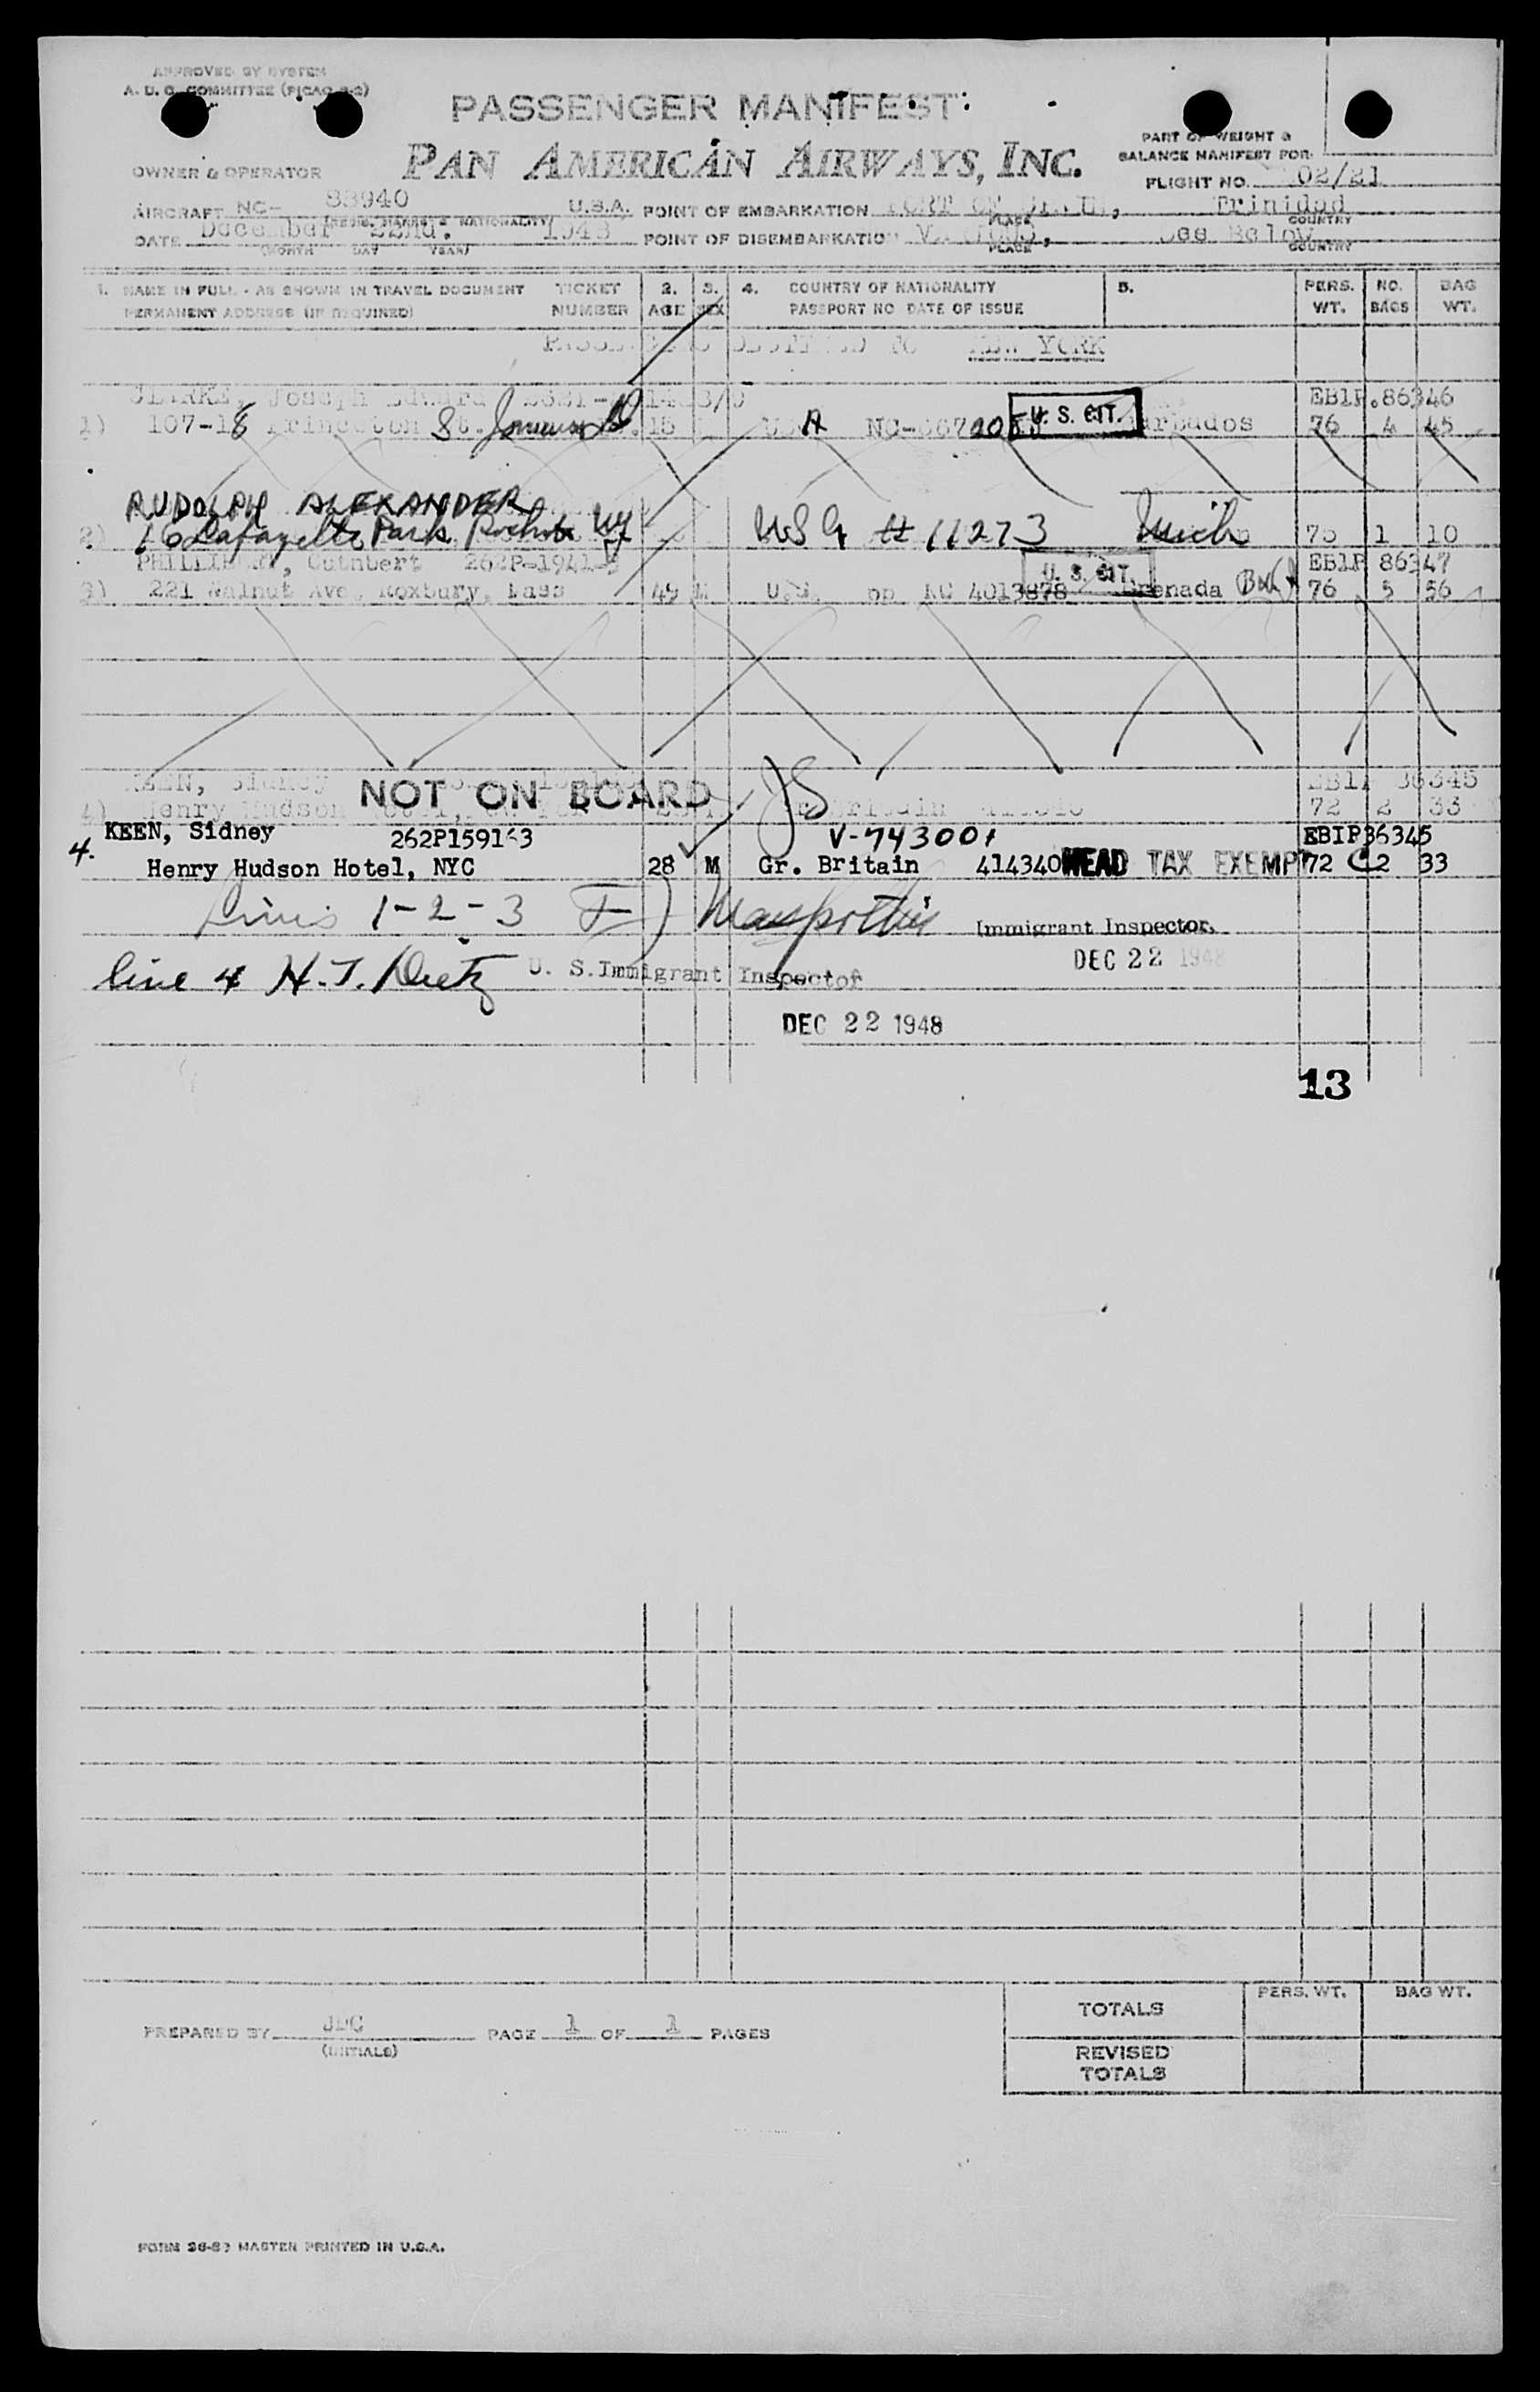 APPROVED BY SYSTEM
A. D. C. COMMITTEE (PICAO 2-2)
PASSENGER MANIFEST
PAN AMERICAN AIRWAYS, INC.
PART OF WEIGHT &
BALANCE MANIFEST FOR:
OWNER & OPERATOR
FLIGHT NO. 02/21
AIRCRAFT NC- 88940 U.S.A. POINT OF EMBARKATION PORT OF Trinidad
PLACE COUNTRY
DATE December 22nd. 1948 POINT OF DISEMBARKATION See Below
(MONTH DAY YEAR) PLACE COUNTRY
1. NAME IN FULL - AS SHOWN IN TRAVEL DOCUMENT TICKET 2. 3. 4. COUNTRY OF NATIONALITY 5. PERS. NO. BAG
PERMANENT ADDRESS (IF REQUIRED) NUMBER AGE SEX PASSPORT NO DATE OF ISSUE WT. BAGS WT.
NEW YORK
CLARKE, Joseph Edward EB1P.86346
1) 107-18 Princeton St. U.S. CIT. Barbados 76 4 45
RUDOLPH ALEXANDER
2) 16 Lafayette Park NY # 11273 1 10
PHILLIP, Cuthbert 262P-1941- U. S. CIT. EB1P 86347
3) 221 Walnut Ave, Roxbury, Mass 49 M U.S. pp NC 4013878 Grenada 76 5 56
KEEN, Sidney NOT ON BOARD EB1P 86345
4) Henry Hudson 72 2 33
KEEN, Sidney 262P159163 V-743001 EBIP86345
4. Henry Hudson Hotel, NYC 28 M Gr. Britain 414340 HEAD TAX EXEMPT 72 2 33
Lines 1-2-3 Immigrant Inspector.
DEC 22 1948
line 4 H. J. Dietz U. S. Immigrant Inspector
DEC 22 1948
13
TOTALS PERS. WT. BAG WT.
PREPARED BY JDC PAGE 1 OF 1 PAGES
(INITIALS)
REVISED
TOTALS
MASTER PRINTED IN U.S.A.